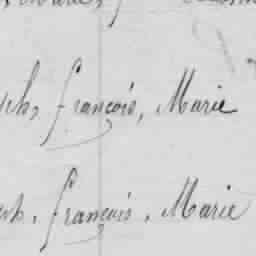 françois, Marie
françois, Marie